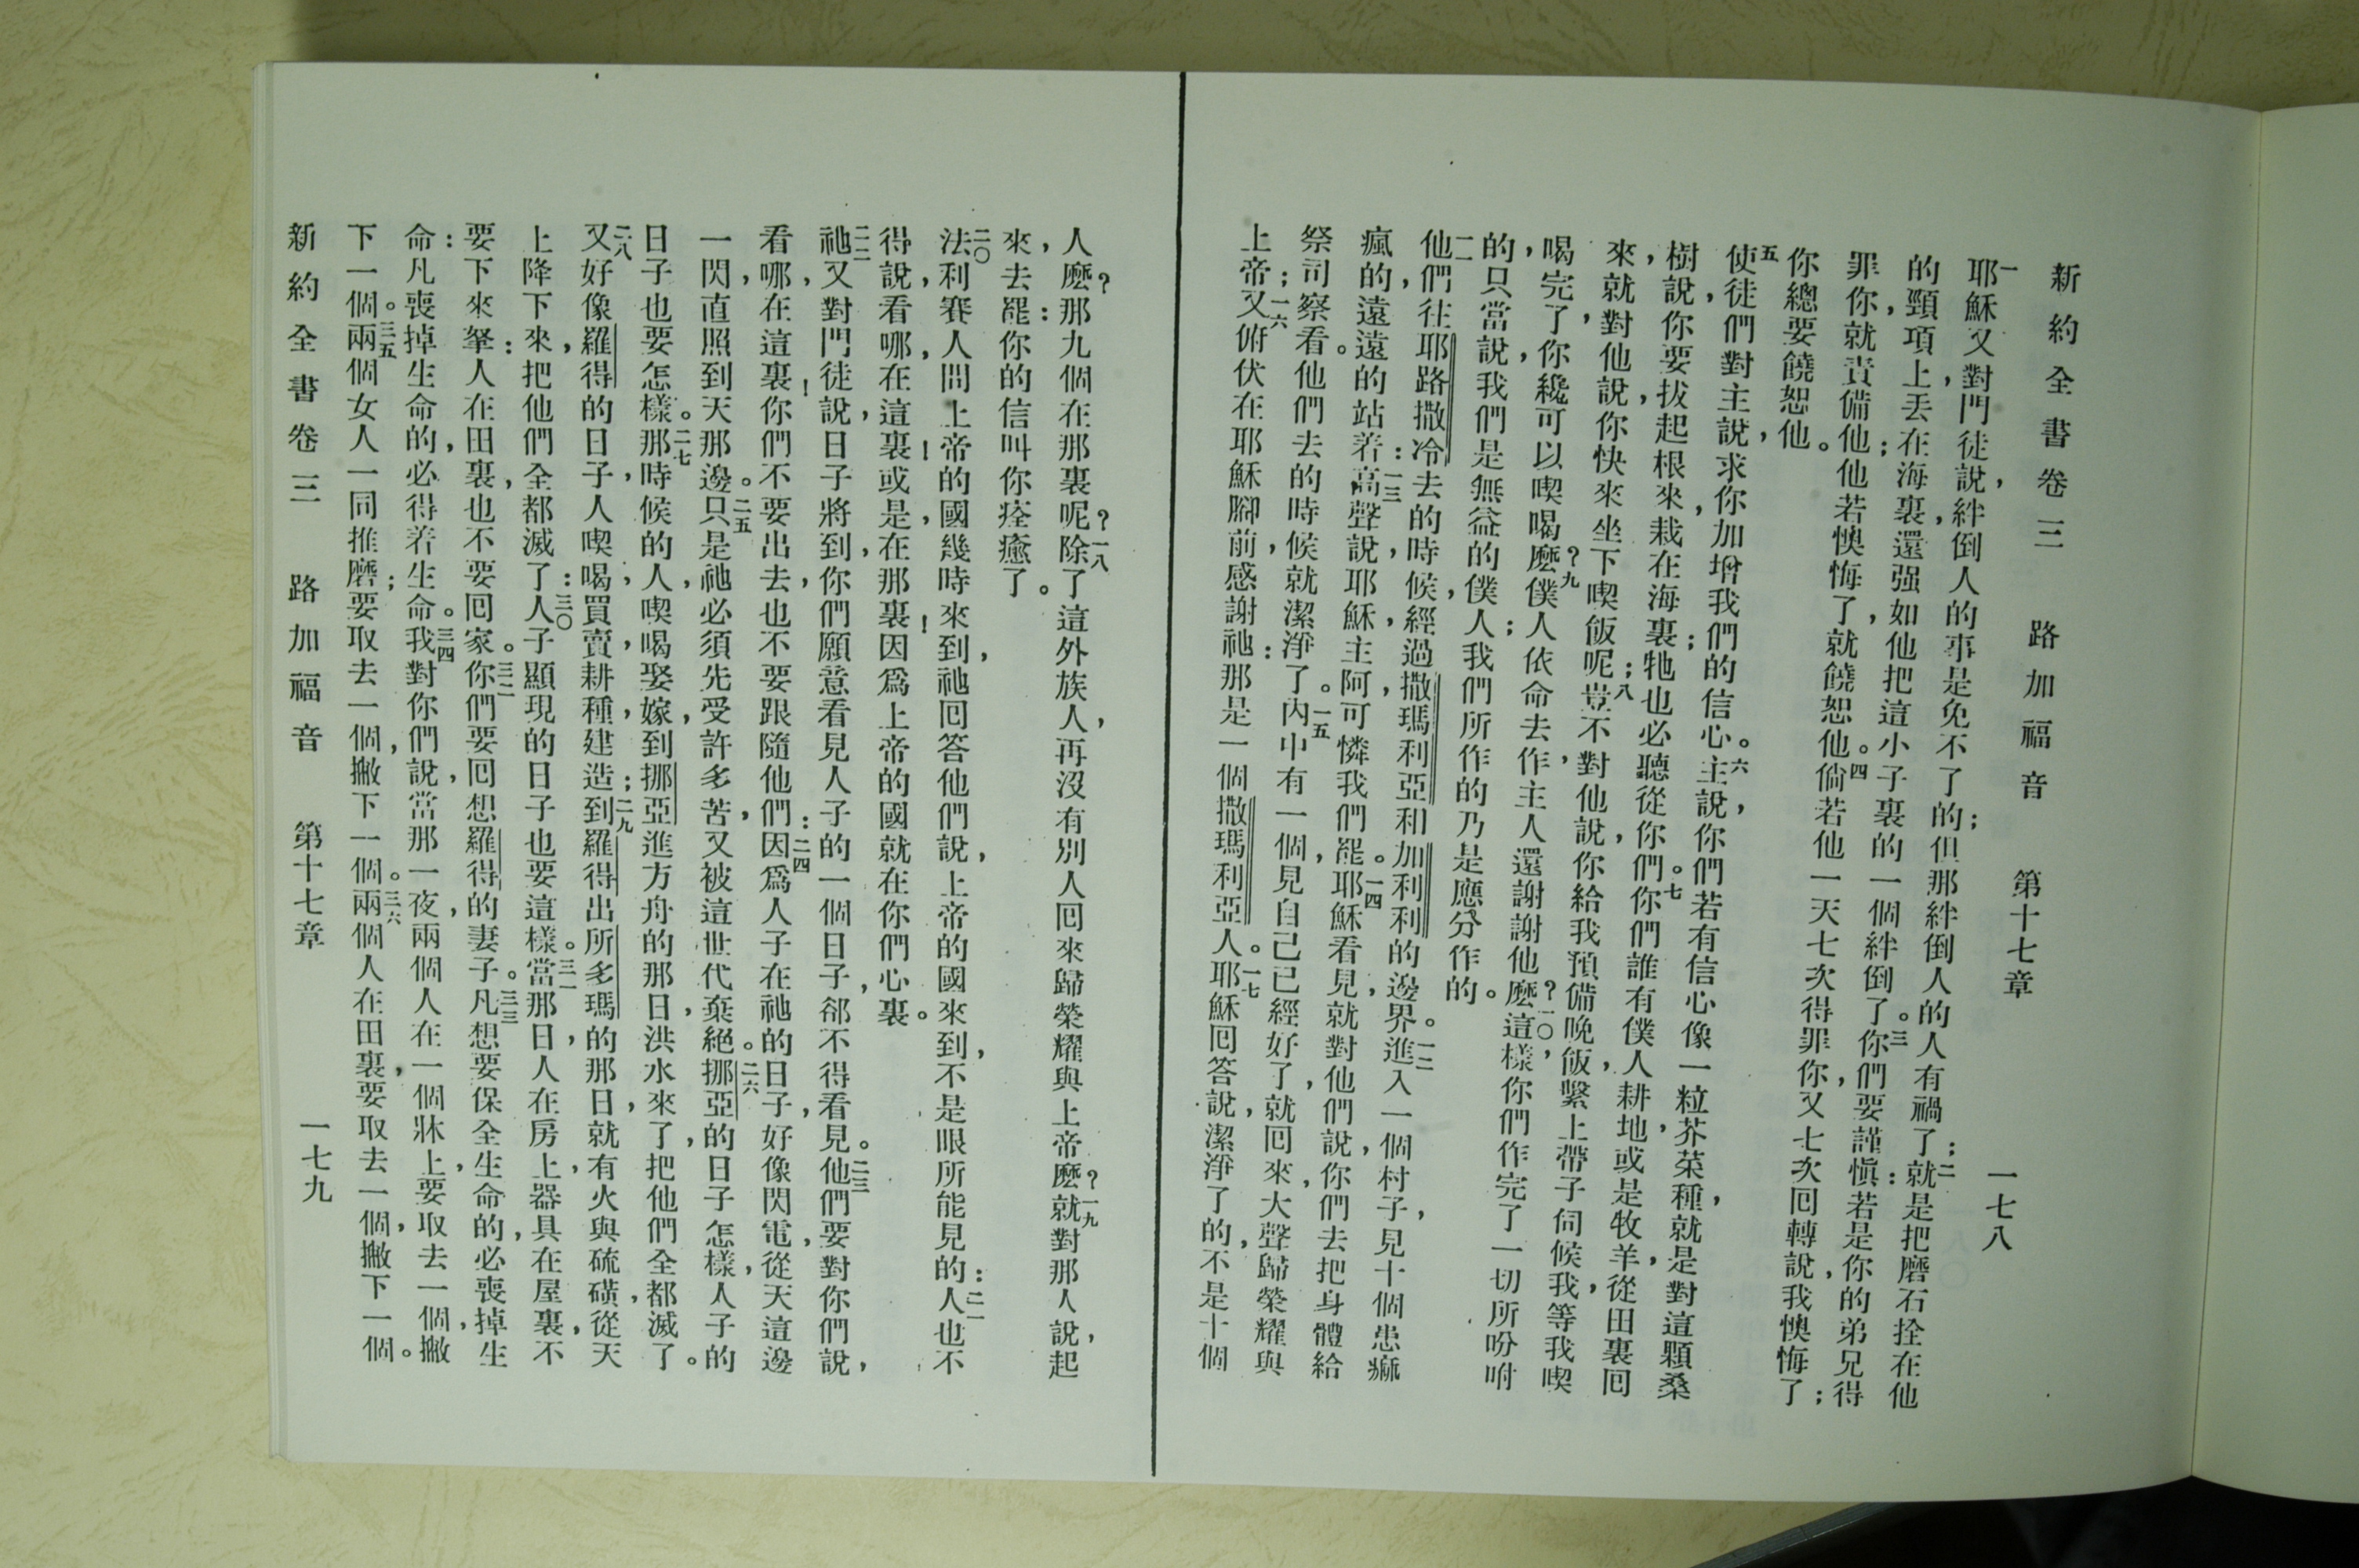 新約全書卷三 路加福音 第十七章 一七八
一耶穌又對門徒說，絆倒人的事是免不了的；但那絆倒人的人有禍了；二就是把磨石拴在他
的頸項上，丟在海裏，還强如他把這小子裏的一個絆倒了。三你們要謹愼：若是你的弟兄得
罪你，就責備他；他若懊悔了，就饒恕他。四倘若他一天七次得罪你，又七次囘轉說，我懊悔了；
你總要饒恕他。
五使徒們對主說，求你加增我們的信心。六主說，你們若有信心像一粒芥菜種，就是對這顆桑
樹說，你要拔起根來，栽在海裏；牠也必聽從你們。七你們誰有僕人耕地，或是牧羊，從田裏囘
來，就對他說，你快來坐下喫飯呢；八豈不對他說，你給我預備晚飯，繫上帶子伺候我，等我喫
喝完了，你纔可以喫喝麼？九僕人依命去作，主人還謝謝他麼？一〇這樣，你們作完了一切所吩咐
的，只當說，我們是無益的僕人；我們所作的乃是應分作的。
一一他們往耶路撒冷去的時候，經過撒瑪利亞和加利利的邊界。一二進入一個村子，見十個患痲
瘋的，遠遠的站着：一三高聲說，耶穌，主阿，可憐我們罷。一四耶穌看見，就對他們說，你們去把身體給
祭司察看。他們去的時候就潔淨了。一五內中有一個，見自己已經好了，就囘來，大聲歸榮耀與
上帝；一六又俯伏在耶穌腳前，感謝祂：那是一個撒瑪利亞人。一七耶穌囘答說，潔淨了的，不是十個
人麼？那九個在那裏呢？一八除了這外族人，再沒有別人囘來歸榮耀與上帝麼？一九就對那人說，起
來，去罷：你的信叫你痊癒了。
二〇法利賽人問上帝的國幾時來到，祂囘答他們說，上帝的國來到，不是眼所能見的：二一人也不
得說，看哪，在這裏！或是，在那裏！因爲上帝的國就在你們心裏。
二二祂又對門徒說，日子將到，你們願意看見人子的一個日子，郤不得看見。二三他們要對你們說，
看哪，在這裏！你們不要出去，也不要跟隨他們：二四因爲人子在祂的日子，好像閃電，從天這邊
一閃，直照到天那邊。二五只是祂必須先受許多苦，又被這世代棄絕。二六挪亞的日子怎樣，人子的
日子也要怎樣。二七那時候的人，喫喝娶嫁，到挪亞進方舟的那日，洪水來了，把他們全都滅了。
二八又好像羅得的日子，人喫喝，買賣，耕種，建造；二九到羅得出所多瑪的那日，就有火與硫磺，從天
上降下來，把他們全都滅了：三〇人子顯現的日子也要這樣。三一當那日，人在房上，器具在屋裏，不
要下來拏：人在田裏，也不要囘家。三二你們要囘想羅得的妻子。三三凡想要保全生命的，必喪掉生
命：凡喪掉生命的，必得着生命。三四我對你們說，當那一夜，兩個人在一個牀上，要取去一個，撇
下一個。三五兩個女人一同推磨；要取去一個，撇下一個。三六兩個人在田裏，要取去一個，撇下一個。
新約全書卷三 路加福音 第十七章 一七九